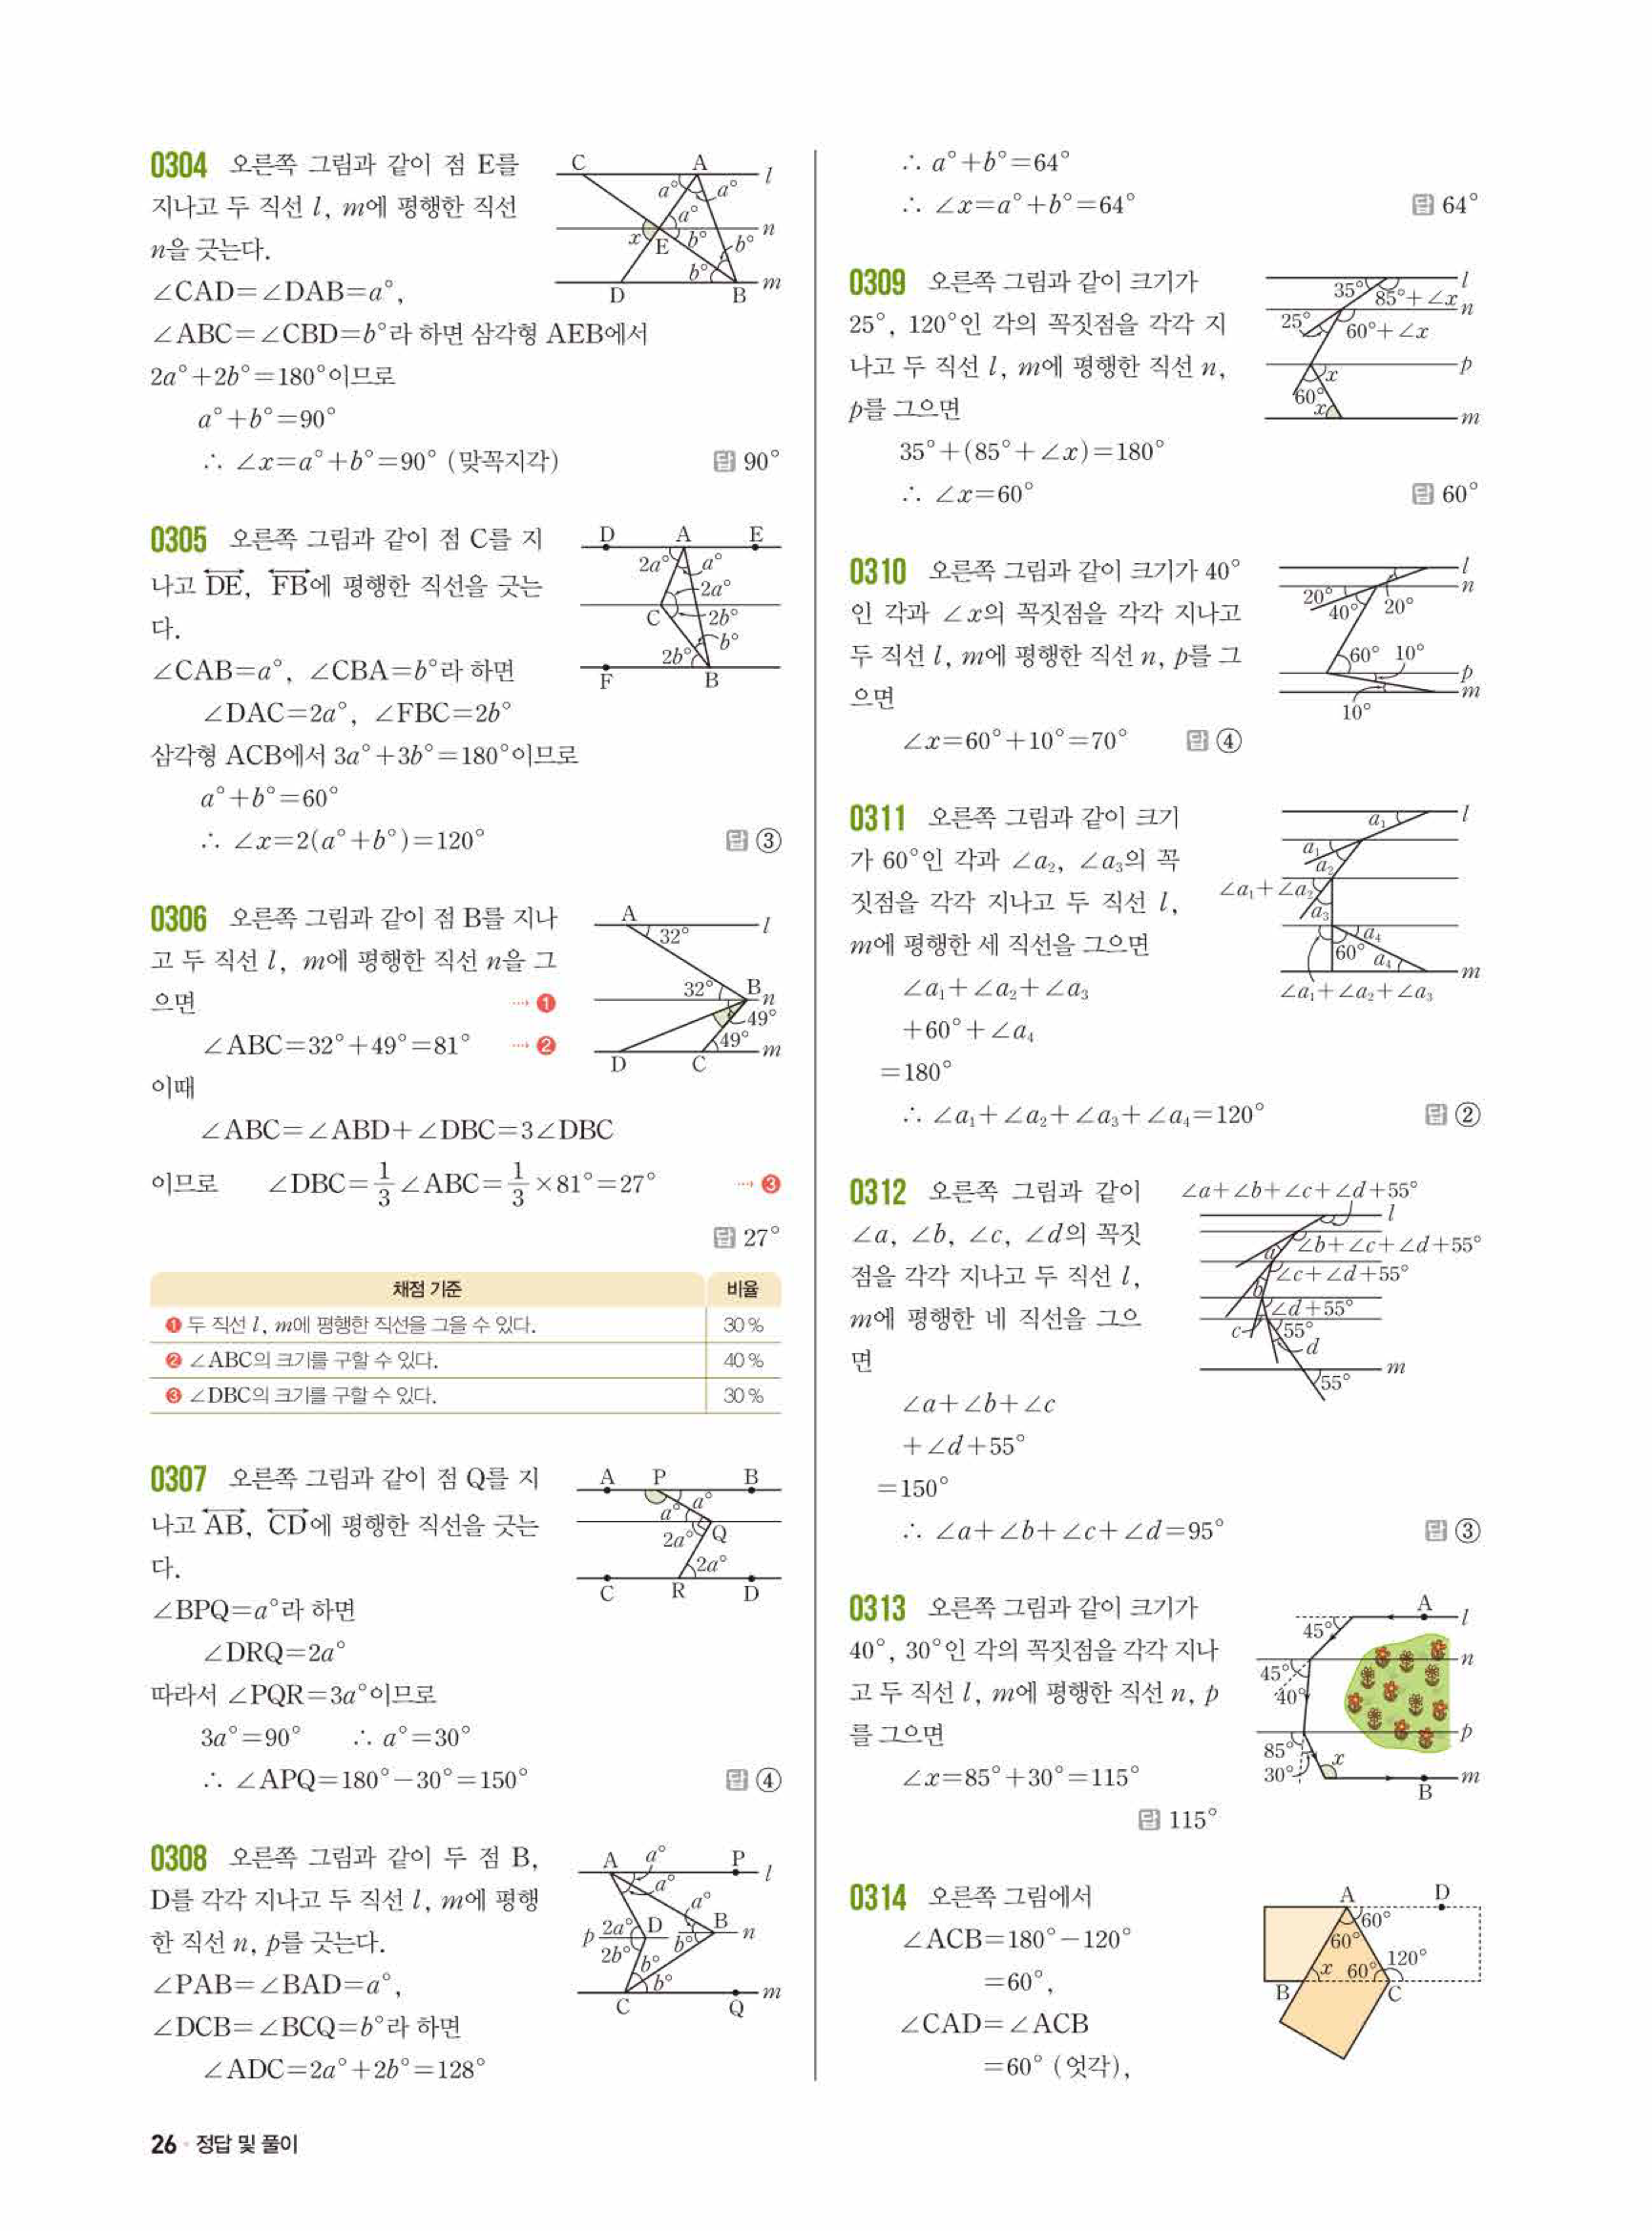 0304 오른쪽 그림과 같이 점 E를
지나고 두 직선 l, m에 평행한 직선
n을 긋는다.
∠CAD=∠DAB=a°,
∠ABC=∠CBD=b°라 하면 삼각형 AEB에서
2a°+2b°=180°이므로
a°+b°=90°
∴ ∠x=a°+b°=90° (맞꼭지각)
답 90°
C A l
a° a°
a°
n
x E b° b°
b°
D B m
0305 오른쪽 그림과 같이 점 C를 지
나고 DE, FB에 평행한 직선을 긋는
다.
∠CAB=a°, ∠CBA=b°라 하면
∠DAC=2a°, ∠FBC=2b°
삼각형 ACB에서 3a°+3b°=180°이므로
a°+b°=60°
∴ ∠x=2(a°+b°)=120°
답 ③
D A E
2a° a°
2a°
C 2b°
b°
2b°
F B
0306 오른쪽 그림과 같이 점 B를 지나
고 두 직선 l, m에 평행한 직선 n을 그
으면 ❶
∠ABC=32°+49°=81° ❷
이때
∠ABC=∠ABD+∠DBC=3∠DBC
이므로 ∠DBC=1/3∠ABC=1/3×81°=27° ❸
답 27°
A l
32°
32° B
n
49°
49° m
D C
채점 기준 비율
❶ 두 직선 l, m에 평행한 직선을 그을 수 있다. 30 %
❷ ∠ABC의 크기를 구할 수 있다. 40 %
❸ ∠DBC의 크기를 구할 수 있다. 30 %
0307 오른쪽 그림과 같이 점 Q를 지
나고 AB, CD에 평행한 직선을 긋는
다.
∠BPQ=a°라 하면
∠DRQ=2a°
따라서 ∠PQR=3a°이므로
3a°=90° ∴ a°=30°
∴ ∠APQ=180°-30°=150°
답 ④
A P B
a°
a°
2a° Q
2a°
C R D
0308 오른쪽 그림과 같이 두 점 B,
D를 각각 지나고 두 직선 l, m에 평행
한 직선 n, p를 긋는다.
∠PAB=∠BAD=a°,
∠DCB=∠BCQ=b°라 하면
∠ADC=2a°+2b°=128°
A a° P l
a°
a°
p 2a° D B n
2b° b°
b°
b°
C Q m
∴ a°+b°=64°
∴ ∠x=a°+b°=64°
답 64°
0309 오른쪽 그림과 같이 크기가
25°, 120°인 각의 꼭짓점을 각각 지
나고 두 직선 l, m에 평행한 직선 n,
p를 그으면
35°+(85°+∠x)=180°
∴ ∠x=60°
답 60°
l
35° 85°+∠x n
25° 60°+∠x
p
x
60°
x m
0310 오른쪽 그림과 같이 크기가 40°
인 각과 ∠x의 꼭짓점을 각각 지나고
두 직선 l, m에 평행한 직선 n, p를 그
으면
∠x=60°+10°=70° 답 ④
l
n
20° 20°
40°
60° 10°
p
m
10°
0311 오른쪽 그림과 같이 크기
가 60°인 각과 ∠a₂, ∠a₃의 꼭
짓점을 각각 지나고 두 직선 l,
m에 평행한 세 직선을 그으면
∠a₁+∠a₂+∠a₃
+60°+∠a₄
=180°
∴ ∠a₁+∠a₂+∠a₃+∠a₄=120°
답 ②
a₁ l
a₁
a₂
∠a₁+∠a₂
a₃
a₄
60° a₄
m
∠a₁+∠a₂+∠a₃
0312 오른쪽 그림과 같이
∠a, ∠b, ∠c, ∠d의 꼭짓
점을 각각 지나고 두 직선 l,
m에 평행한 네 직선을 그으
면
∠a+∠b+∠c
+∠d+55°
=150°
∴ ∠a+∠b+∠c+∠d=95°
답 ③
∠a+∠b+∠c+∠d+55°
l
a ∠b+∠c+∠d+55°
∠c+∠d+55°
b
∠d+55°
c 55°
d
m
55°
0313 오른쪽 그림과 같이 크기가
40°, 30°인 각의 꼭짓점을 각각 지나
고 두 직선 l, m에 평행한 직선 n, p
를 그으면
∠x=85°+30°=115°
답 115°
A l
45°
n
45°
40°
p
85° x
30° m
B
0314 오른쪽 그림에서
∠ACB=180°-120°
=60°,
∠CAD=∠ACB
=60° (엇각),
A D
60°
60°
120°
x 60°
B C
26 · 정답 및 풀이